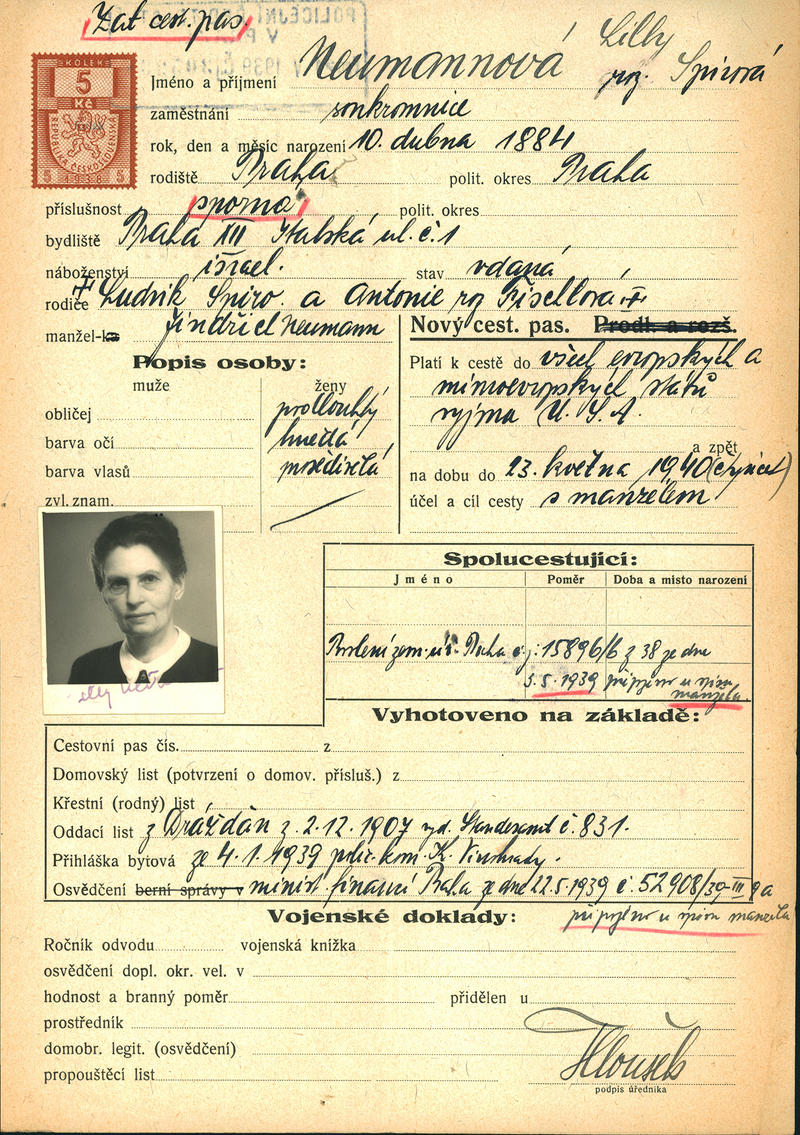 Zat. cest. pas.
KOLEK
5
Kč
REPUBLIKA ČESKOSLOVENSKÁ
5 1938 5
Jméno a příjmení Neumannová Lilly
roz. Spirová
zaměstnání soukromnice
rok, den a měsíc narození 10. dubna 1884
rodiště Praha polit. okres Praha
příslušnost sporná polit. okres
bydliště Praha XII Italská ul. č. 1
náboženství israel. stav vdaná
rodiče Ludvík Spiro a Antonie roz Fisellová
manžel-ka Jindřich Neumann
Nový cest. pas. Prodl. a rozš.
Popis osoby:
muže ženy
obličej prodlouhlý
barva očí hnědá
barva vlasů prošedivělá
zvl. znam.
Platí k cestě do všech evropských a
mimoevropských států
vyjma U.S.A.
a zpět
na dobu do 23. května 1940
účel a cíl cesty s manželem
Spolucestující:
Jméno Poměr Doba a misto narození
Povolení zem. úř. Praha č.j: 15896/6 z 38 ze dne
5.5.1939 připojeno u spisu
manžela.
Vyhotoveno na základě:
Cestovní pas čís. z
Domovský list (potvrzení o domov. přísluš.) z
Křestní (rodný) list
Oddací list z Drážďan z. 2.12.1907 vyd. Standesamt č. 831.
Přihláška bytová ze 4.1.1939 polic. kom. K. Vinohrady.
Osvědčení berní správy v minist. financí Praha ze dne 22.5.1939 č. 52908/39-III
připojeno u spisu manžela
Vojenské doklady:
Ročník odvodu vojenská knížka
osvědčení dopl. okr. vel. v
hodnost a branný poměr přidělen u
prostředník
domobr. legit. (osvědčení)
propouštěcí list
Hloušek
podpis úředníka